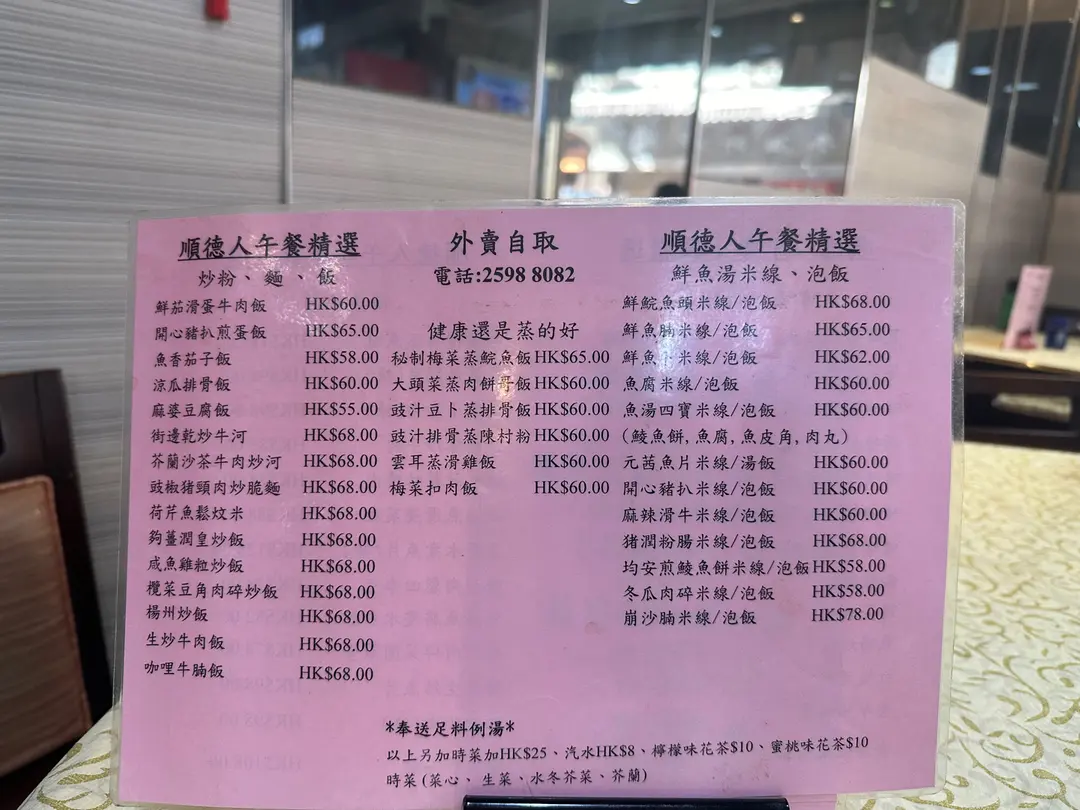 順德人午餐精選
炒粉、麵、飯
鮮茄滑蛋牛肉飯 HK$60.00
開心豬扒煎蛋飯 HK$65.00
魚香茄子飯 HK$58.00
涼瓜排骨飯 HK$60.00
麻婆豆腐飯 HK$55.00
街邊乾炒牛河 HK$68.00
芥蘭沙茶牛肉炒河 HK$68.00
豉椒猪頸肉炒脆麵 HK$68.00
荷芹魚鬆炆米 HK$68.00
夠薑潤皇炒飯 HK$68.00
咸魚雞粒炒飯 HK$68.00
欖菜豆角肉碎炒飯 HK$68.00
楊州炒飯 HK$68.00
生炒牛肉飯 HK$68.00
咖哩牛腩飯 HK$68.00
外賣自取
電話:2598 8082
健康還是蒸的好
秘制梅菜蒸鯇魚飯 HK$65.00
大頭菜蒸肉餅 飯 HK$60.00
豉汁豆卜蒸排骨飯 HK$60.00
豉汁排骨蒸陳村粉 HK$60.00
雲耳蒸滑雞飯 HK$60.00
梅菜扣肉飯 HK$60.00
順德人午餐精選
鮮魚湯米線、泡飯
鮮鯇魚頭米線/泡飯 HK$68.00
鮮魚腩米線/泡飯 HK$65.00
鮮魚 米線/泡飯 HK$62.00
魚腐米線/泡飯 HK$60.00
魚湯四寶米線/泡飯 HK$60.00
(鯪魚餅,魚腐,魚皮角,肉丸)
元茜魚片米線/湯飯 HK$60.00
開心豬扒米線/泡飯 HK$60.00
麻辣滑牛米線/泡飯 HK$60.00
猪潤粉腸米線/泡飯 HK$68.00
均安煎鯪魚餅米線/泡飯 HK$58.00
冬瓜肉碎米線/泡飯 HK$58.00
崩沙腩米線/泡飯 HK$78.00
*奉送足料例湯*
以上另加時菜加HK$25、汽水HK$8、檸檬味花茶$10、蜜桃味花茶$10
時菜(菜心、生菜、水冬芥菜、芥蘭)